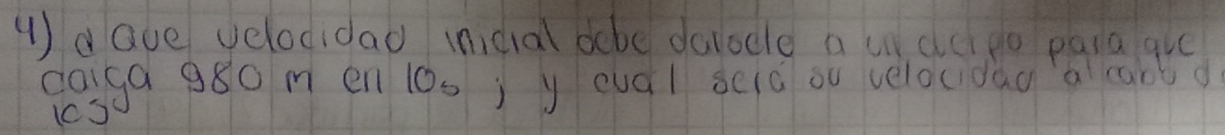 4) d que velocidad inicial debe darsele a un cuerpo para que
caiga 980 m en 10s ; y cual será su velocidad al cabo d
10s